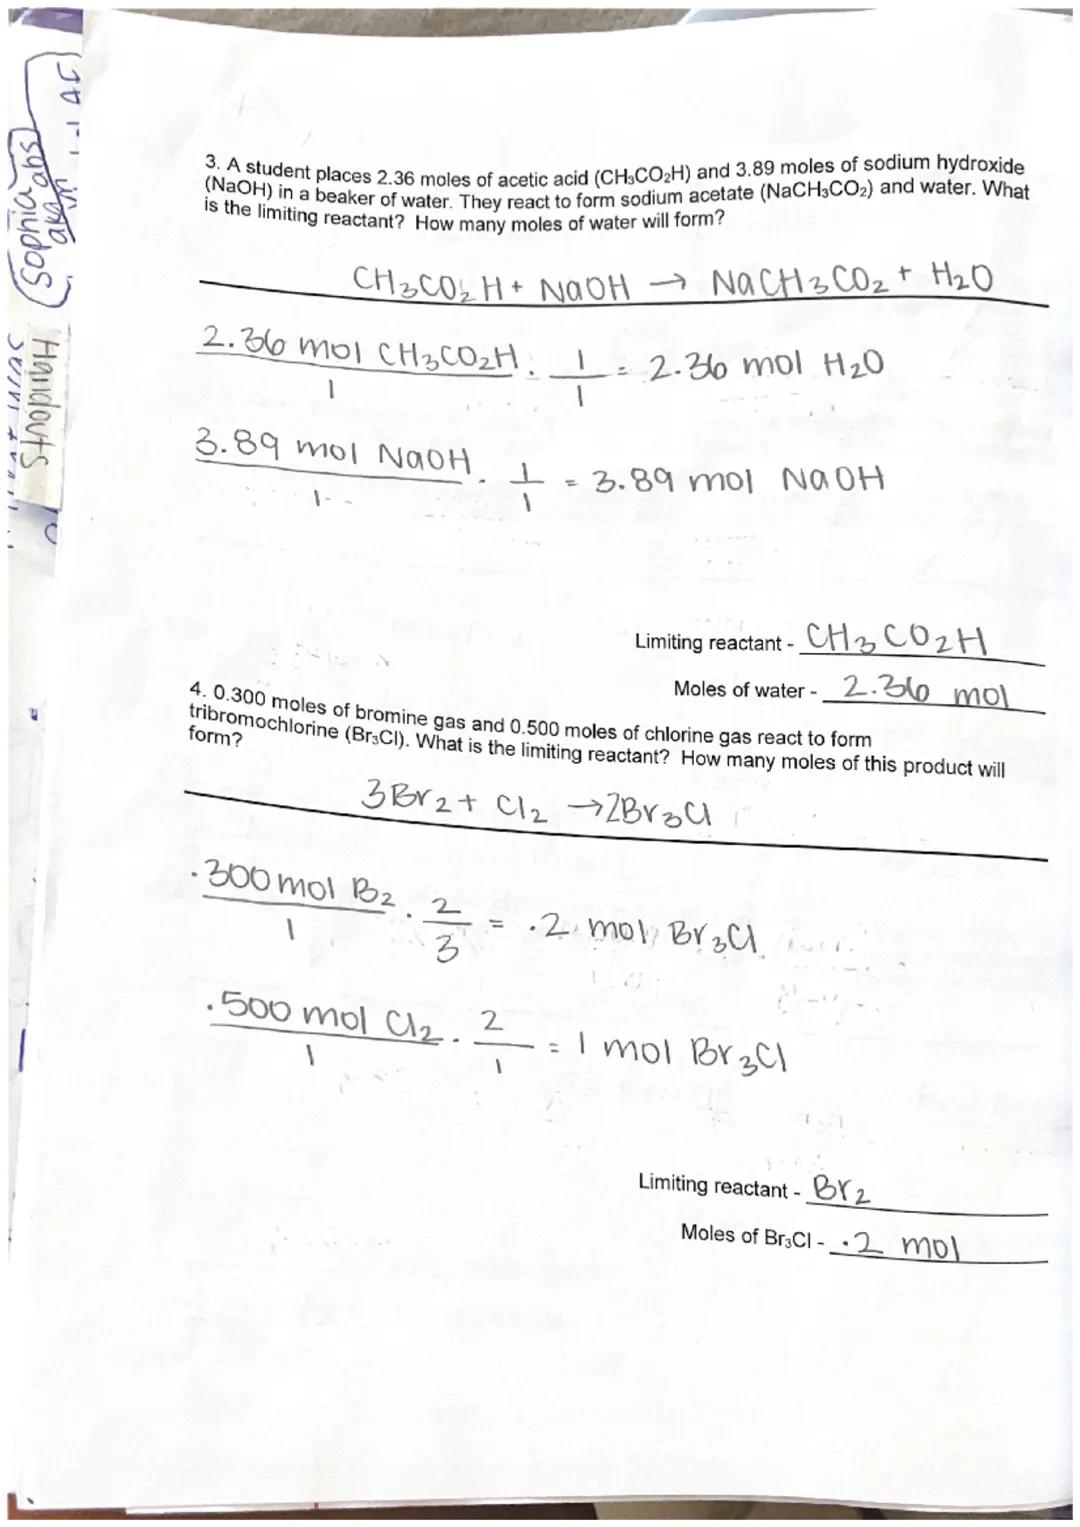 3. A student places 2.36 moles of acetic acid (CH₃CO₂H) and 3.89 moles of sodium hydroxide
(NaOH) in a beaker of water. They react to form sodium acetate (NaCH₃CO₂) and water. What
is the limiting reactant? How many moles of water will form?
CH₃CO₂H + NaOH → NaCH₃CO₂ + H₂O
2.36 mol CH₃CO₂H/1 · 1/1 = 2.36 mol H₂O
3.89 mol NaOH/1 · 1/1 = 3.89 mol NaOH
Limiting reactant - CH₃CO₂H
Moles of water - 2.36 mol
4. 0.300 moles of bromine gas and 0.500 moles of chlorine gas react to form
tribromochlorine (Br₃Cl). What is the limiting reactant? How many moles of this product will
form?
3Br₂ + Cl₂ → 2Br₃Cl
.300 mol B₂/1 · 2/3 = .2 mol Br₃Cl
.500 mol Cl₂/1 · 2/1 = 1 mol Br₃Cl
Limiting reactant - Br₂
Moles of Br₃Cl - .2 mol
Sophia
abs